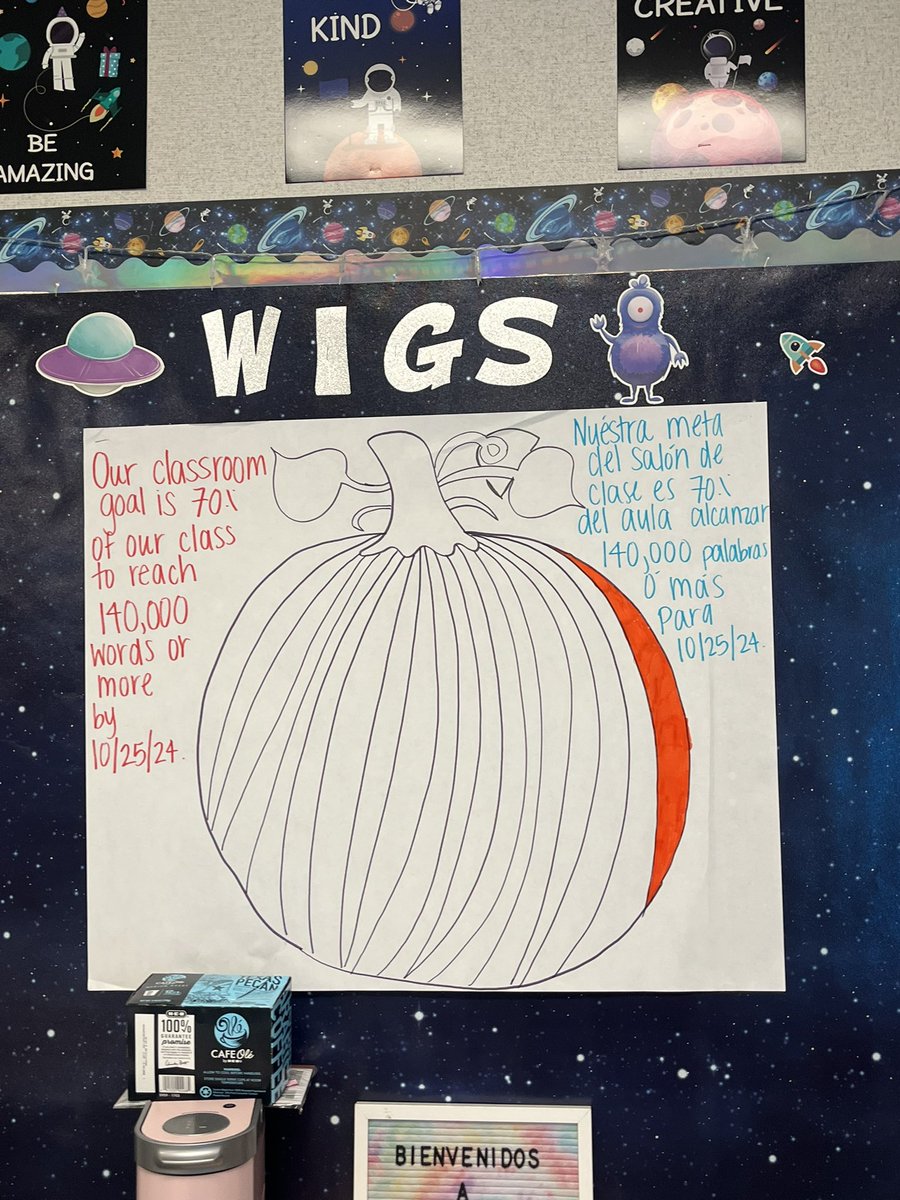 BE
AMAZING
KIND
CREATIVE
WIGS
Our classroom
goal is 70%
of our class
to reach
140,000
words or
more
by
10/25/24.
Nuéstra meta
del salón de
clase es 70%
del aula alcanzar
140,000 palabras
ó más
para
10/25/24.
PECAN
H-E-B
100%
GUARANTEE
promise
Olé
CAFE Olé
by H-E-B
BIENVENIDOS
A